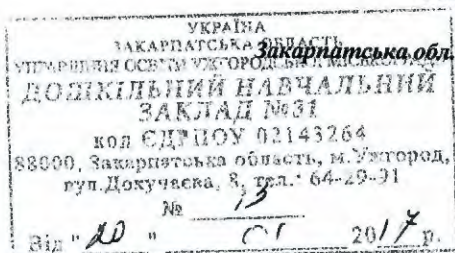 УКРАЇНА
ЗАКАРПАТСЬКА ОБЛАСТЬ
Закарпатська обл.
УПРАВЛІННЯ ОСВІТИ УЖГОРОДСЬКОЇ МІСЬКОЇ РАДИ
ДОШКІЛЬНИЙ НАВЧАЛЬНИЙ
ЗАКЛАД №31
код ЄДРПОУ 02143264
88000, Закарпатська область, м.Ужгород,
вул.Докучаєва, 8, тел.: 64-29-31
№ 13
Від "20" 01 2017 р.